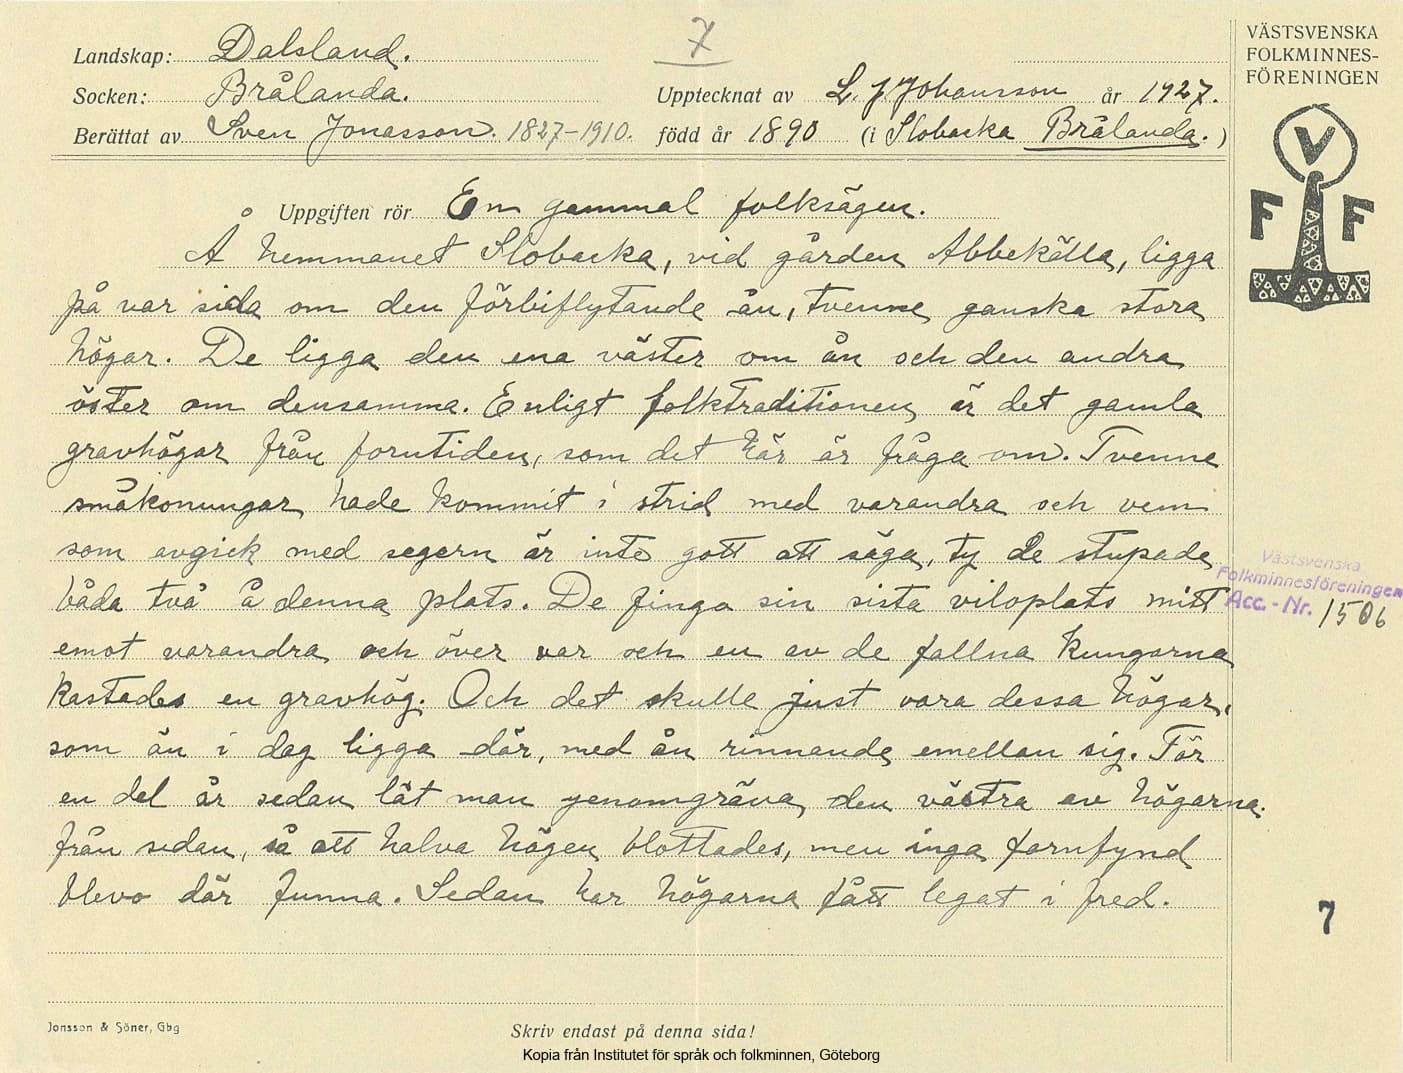 7
Landskap: Dalsland.
Socken: Brålanda.
Upptecknat av L. J. Johansson år 1927.
Berättat av Sven Jonasson. 1827-1910. född år 1890 (i Slobacka Brålanda.)
Uppgiften rör En gammal folksägen.
Å hemmanet Slobacka, vid gården Abbekälla, ligga
på var sida om den förbiflytande ån, tvenne ganska stora
högar. De ligga den ena väster om ån och den andra
öster om densamma. Enligt folktraditionen är det gamla
gravhögar från forntiden, som det här är fråga om. Tvenne
småkonungar hade kommit i strid med varandra och vem
som avgick med segern är inte gott att säga, ty de stupade
båda två å denna plats. De fingo sin sista viloplats mitt
emot varandra och över var och en av de fallna kungarna
kastades en gravhög. Och det skulle just vara dessa högar,
som än i dag ligga där, med ån rinnande emellan sig. För
en del år sedan lät man genomgräva den västra av högarna.
från sidan, så att halva högen blottades, men inga fornfynd
blevo där funna. Sedan har högarna fått legat i fred.
VÄSTSVENSKA
FOLKMINNES-
FÖRENINGEN
V
F F
Västsvenska
Folkminnesföreningen
Acc.-Nr. 1506
7
Jonsson & Söner, Gbg
Skriv endast på denna sida!
Kopia från Institutet för språk och folkminnen, Göteborg